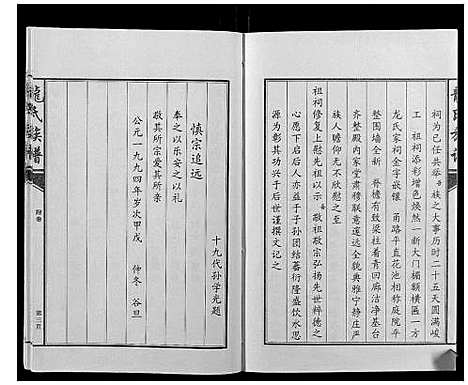 祠为己任共举　族之大事历时二十五天圆满峻
工　祖祠添彩增色焕然一新大门楣额横匾一方
龙氏家祠金子嵌镶　甬路平直花池相称庭院平
整围墙全新　脊檐有致梁柱着青回廊洁净基台
齐整殿内家堂肃穆联意邃远全貌典雅宁静庄严
族人瞻仰无不欣慰之至
祖祠修复上慰先祖以示　敬祖敬宗弘扬先世粹德之
心愿下启后人亦益于子孙团结蕃衍隆盛饮水思
源为彰其功兴于后世谨撰文记之
十九代孙学光题
慎宗追远
奉之以乐安之以礼
敬其所宗爱其所亲
公元一九九四年岁次甲戌　仲冬　谷旦
龍氏族譜
附卷
第三页